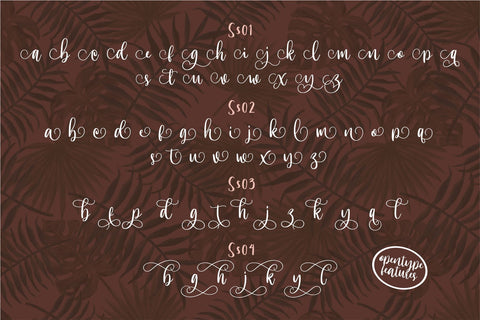 Ss01
a b c d e f g h i j k l m n o p q
s t u v w x y z
Ss02
a b c d e f g h i j k l m n o p q
s t u v w x y z
Ss03
b f p d g h j z k y q l
Ss04
b g h j k y l
opentype
features